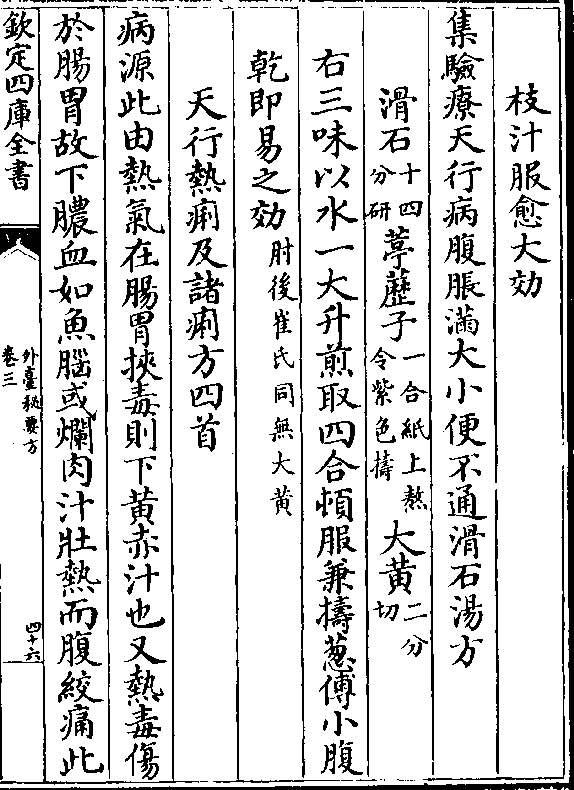 枝汁服愈大効
集驗療天行病腹脹滿大小便不通滑石湯方
滑石十四分研葶藶子一合紙上熬令紫色擣大黄二分切
右三味以水一大升煎取四合頓服兼擣葱傅小腹
乾即易之効肘後崔氏同無大黄
天行熱痢及諸痢方四首
病源此由熱氣在腸胃挾毒則下黄赤汁也又熱毒傷
於腸胃故下膿血如魚腦或爛肉汁壯熱而腹絞痛此
欽定四庫全書
外臺秘要方
卷三
四十六